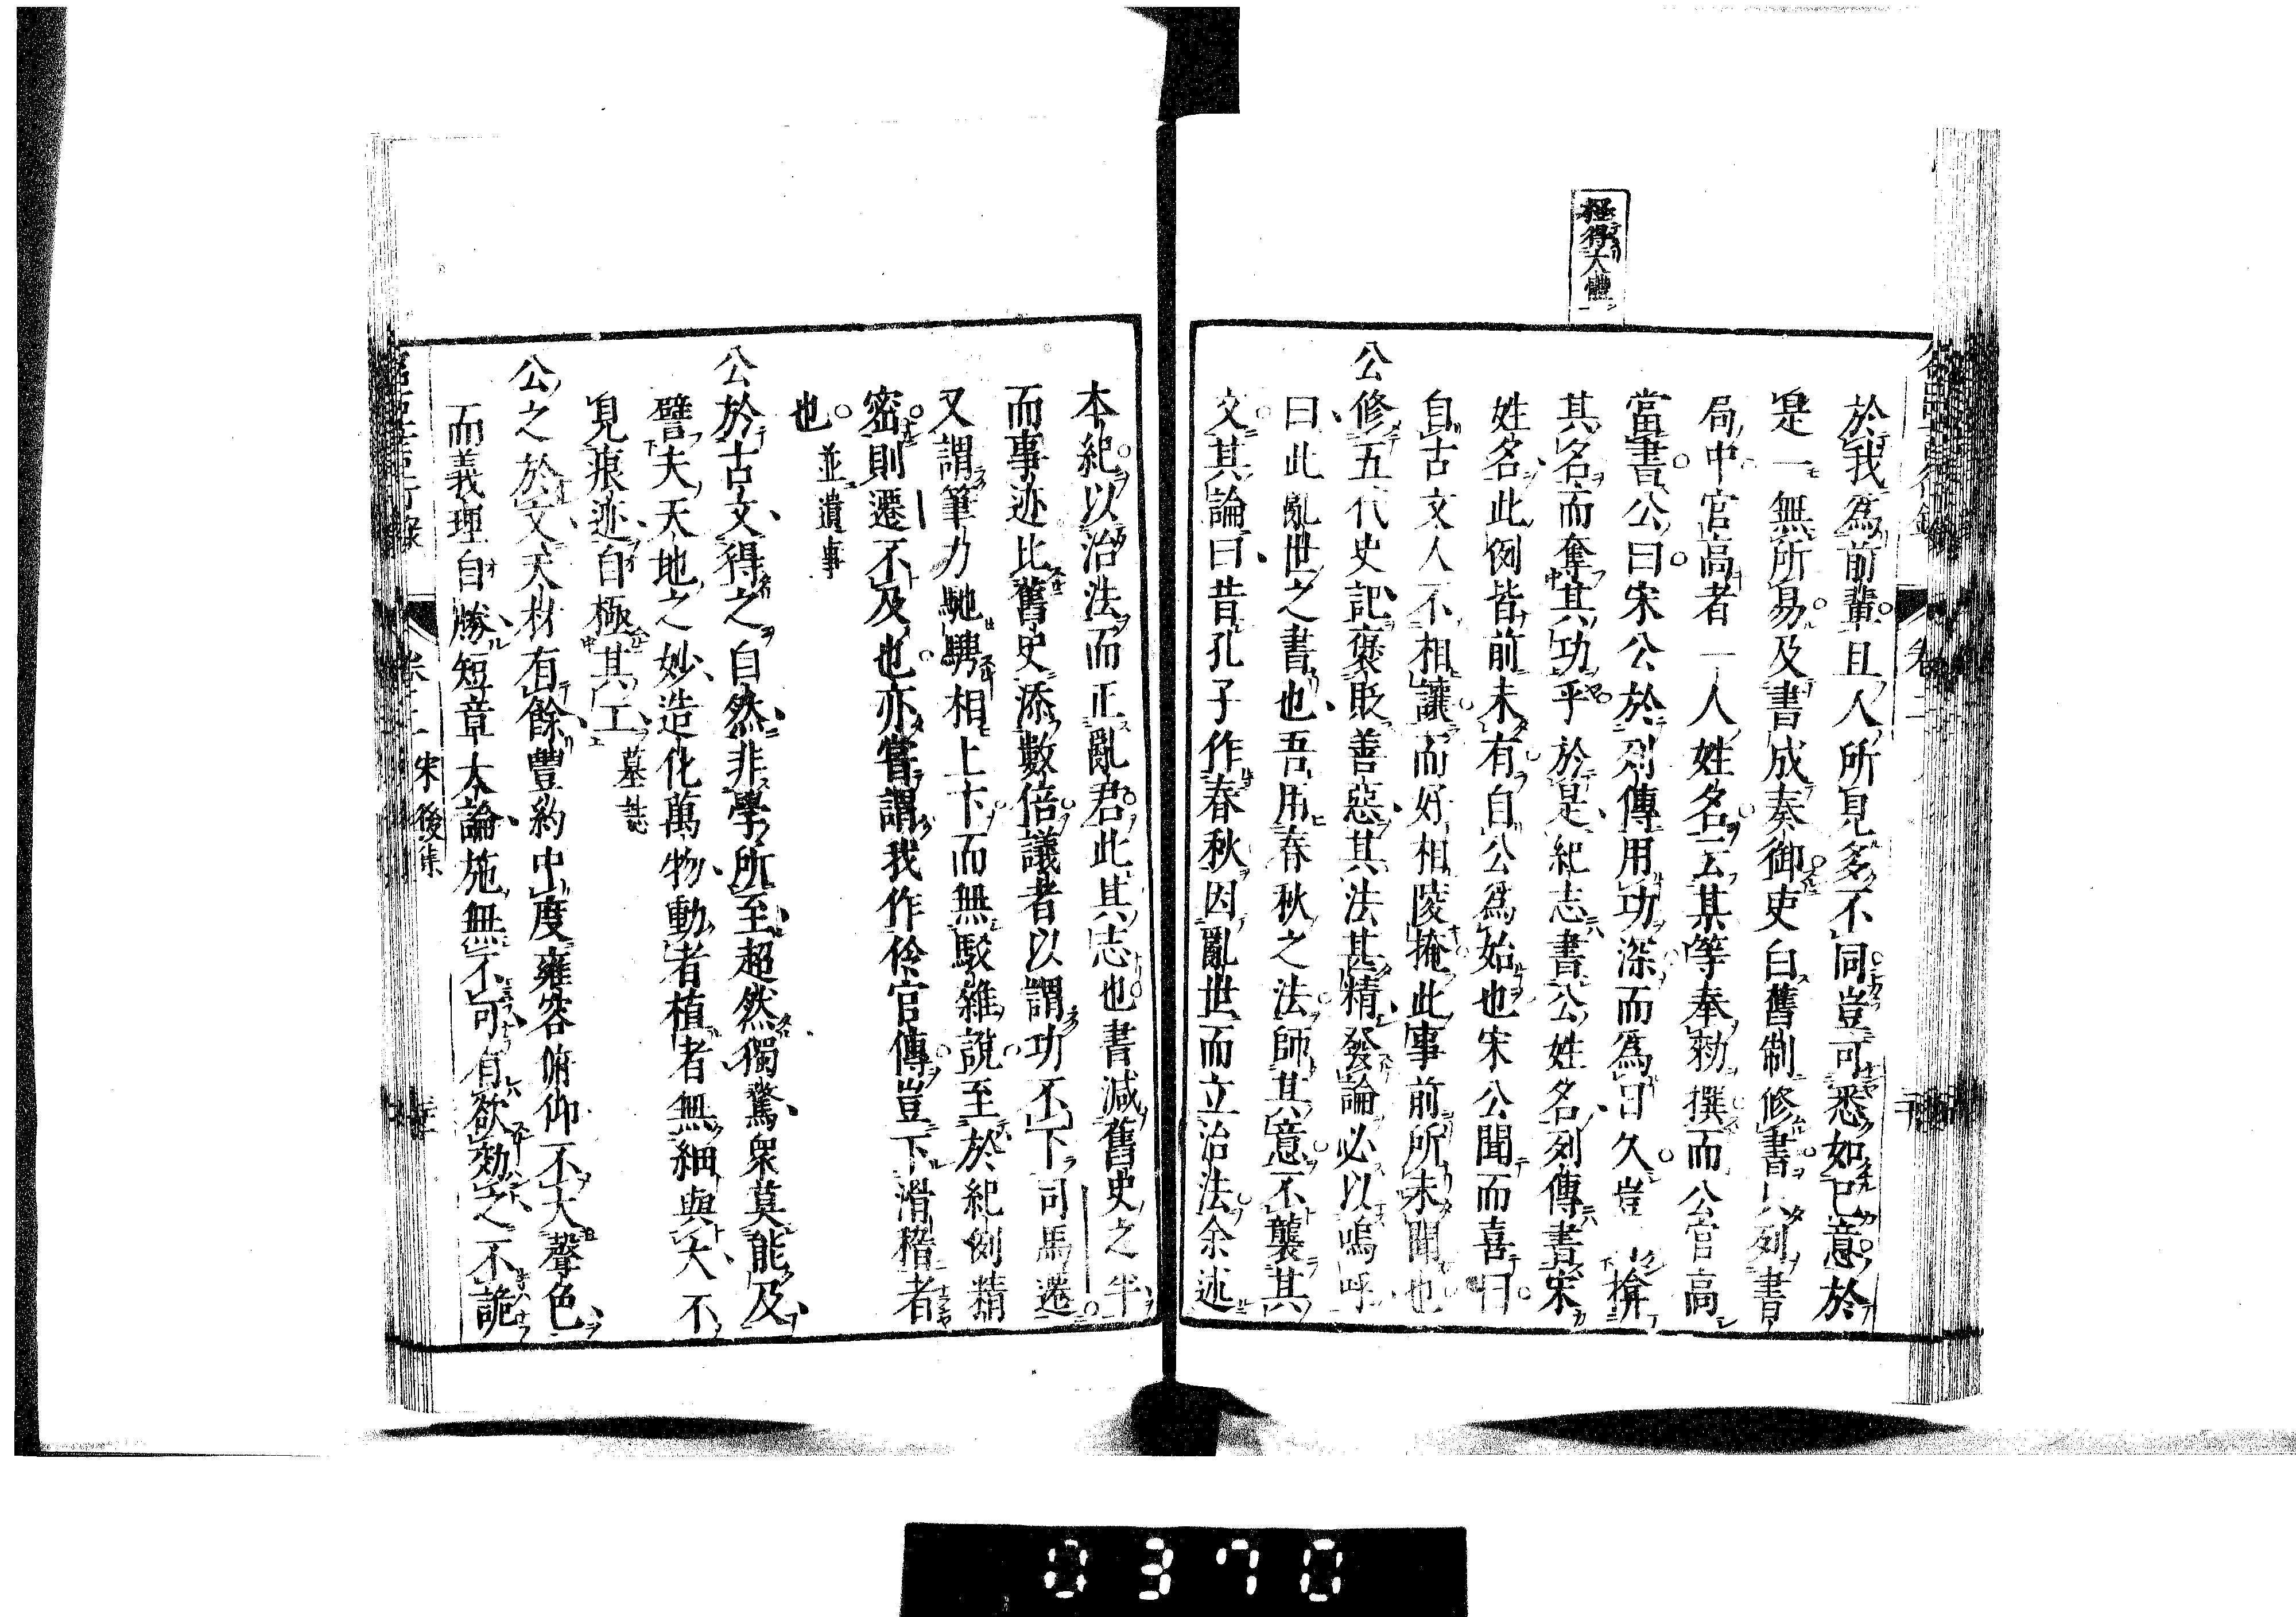 極得大體
於我為前輩且人所見多不同豈可悉如已意於
是一無所易及書成奏御吏白舊制修書只列書
局中官高者一人姓名云某等奉勑撰而公官高
當書公曰宋公於列傳用功深而為日久豈可掩
其名而奪其功乎於是紀志書公姓名列傳書宋
姓名此例皆前未有自公為始也宋公聞而喜曰
自古文人不相讓而好相陵掩此事前所未聞也
公修五代史記褒貶善惡其法甚精發論必以嗚呼
曰此亂世之書也吾用春秋之法師其意不襲其
文其論曰昔孔子作春秋因亂世而立治法余述
本紀以治法而正亂君此其志也書減舊史之半
而事迹比舊史添數倍議者以謂功不下司馬遷
又謂筆力馳騁相上下而無駁雜說至於紀例精
密則遷不及也亦嘗謂我作伶官傳豈下滑稽者
也 並遺事
公於古文得之自然非學所至超然獨騖眾莫能及
譬夫天地之妙造化萬物動者植者無細與大不
見痕迹自極其工 墓誌
公之於文天材有餘豐約中度雍容俯仰不大聲色
而義理自勝短章大論施無不可有欲効之不詭
宋後集
0370